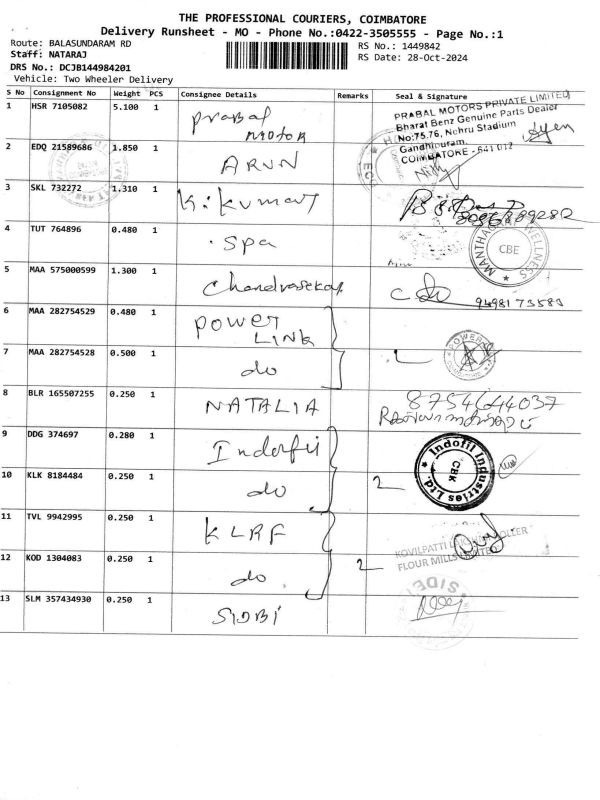 THE PROFESSIONAL COURIERS, COIMBATORE
Delivery Runsheet - MO - Phone No.:0422-3505555 - Page No.:1
Route: BALASUNDARAM RD
Staff: NATARAJ
DRS No.: DCJB144984201
Vehicle: Two Wheeler Delivery
RS No.: 1449842
RS Date: 28-Oct-2024
S No Consignment No Weight PCS Consignee Details Remarks Seal & Signature
1 HSR 7105082 5.100 1 Prabal Motor
PRABAL MOTORS PRIVATE LIMITED
Bharat Benz Genuine Parts Dealer
No:75,76, Nehru Stadium
Gandhipuram,
COIMBATORE - 641 012
2 EDQ 21589686 1.850 1 ARUN
3 SKL 732272 1.310 1 K. Kumar
4 TUT 764896 0.480 1 Spa
MANTHA WELLNESS
CBE
5 MAA 575000599 1.300 1 Chandrasekar
9498173580
6 MAA 282754529 0.480 1 Power Link
POWER
7 MAA 282754528 0.500 1 do
8 BLR 165507255 0.250 1 NATALIA 8754644037
9 DDG 374697 0.280 1 Indofil
Indofil Industries Ltd.
CBK
10 KLK 8184484 0.250 1 do 2
11 TVL 9942995 0.250 1 KLRF
KOVILPATTI LAKSHMI ROLLER
FLOUR MILLS LIMITED
12 KOD 1304083 0.250 1 do 2
13 SLM 357434930 0.250 1 SIDBI